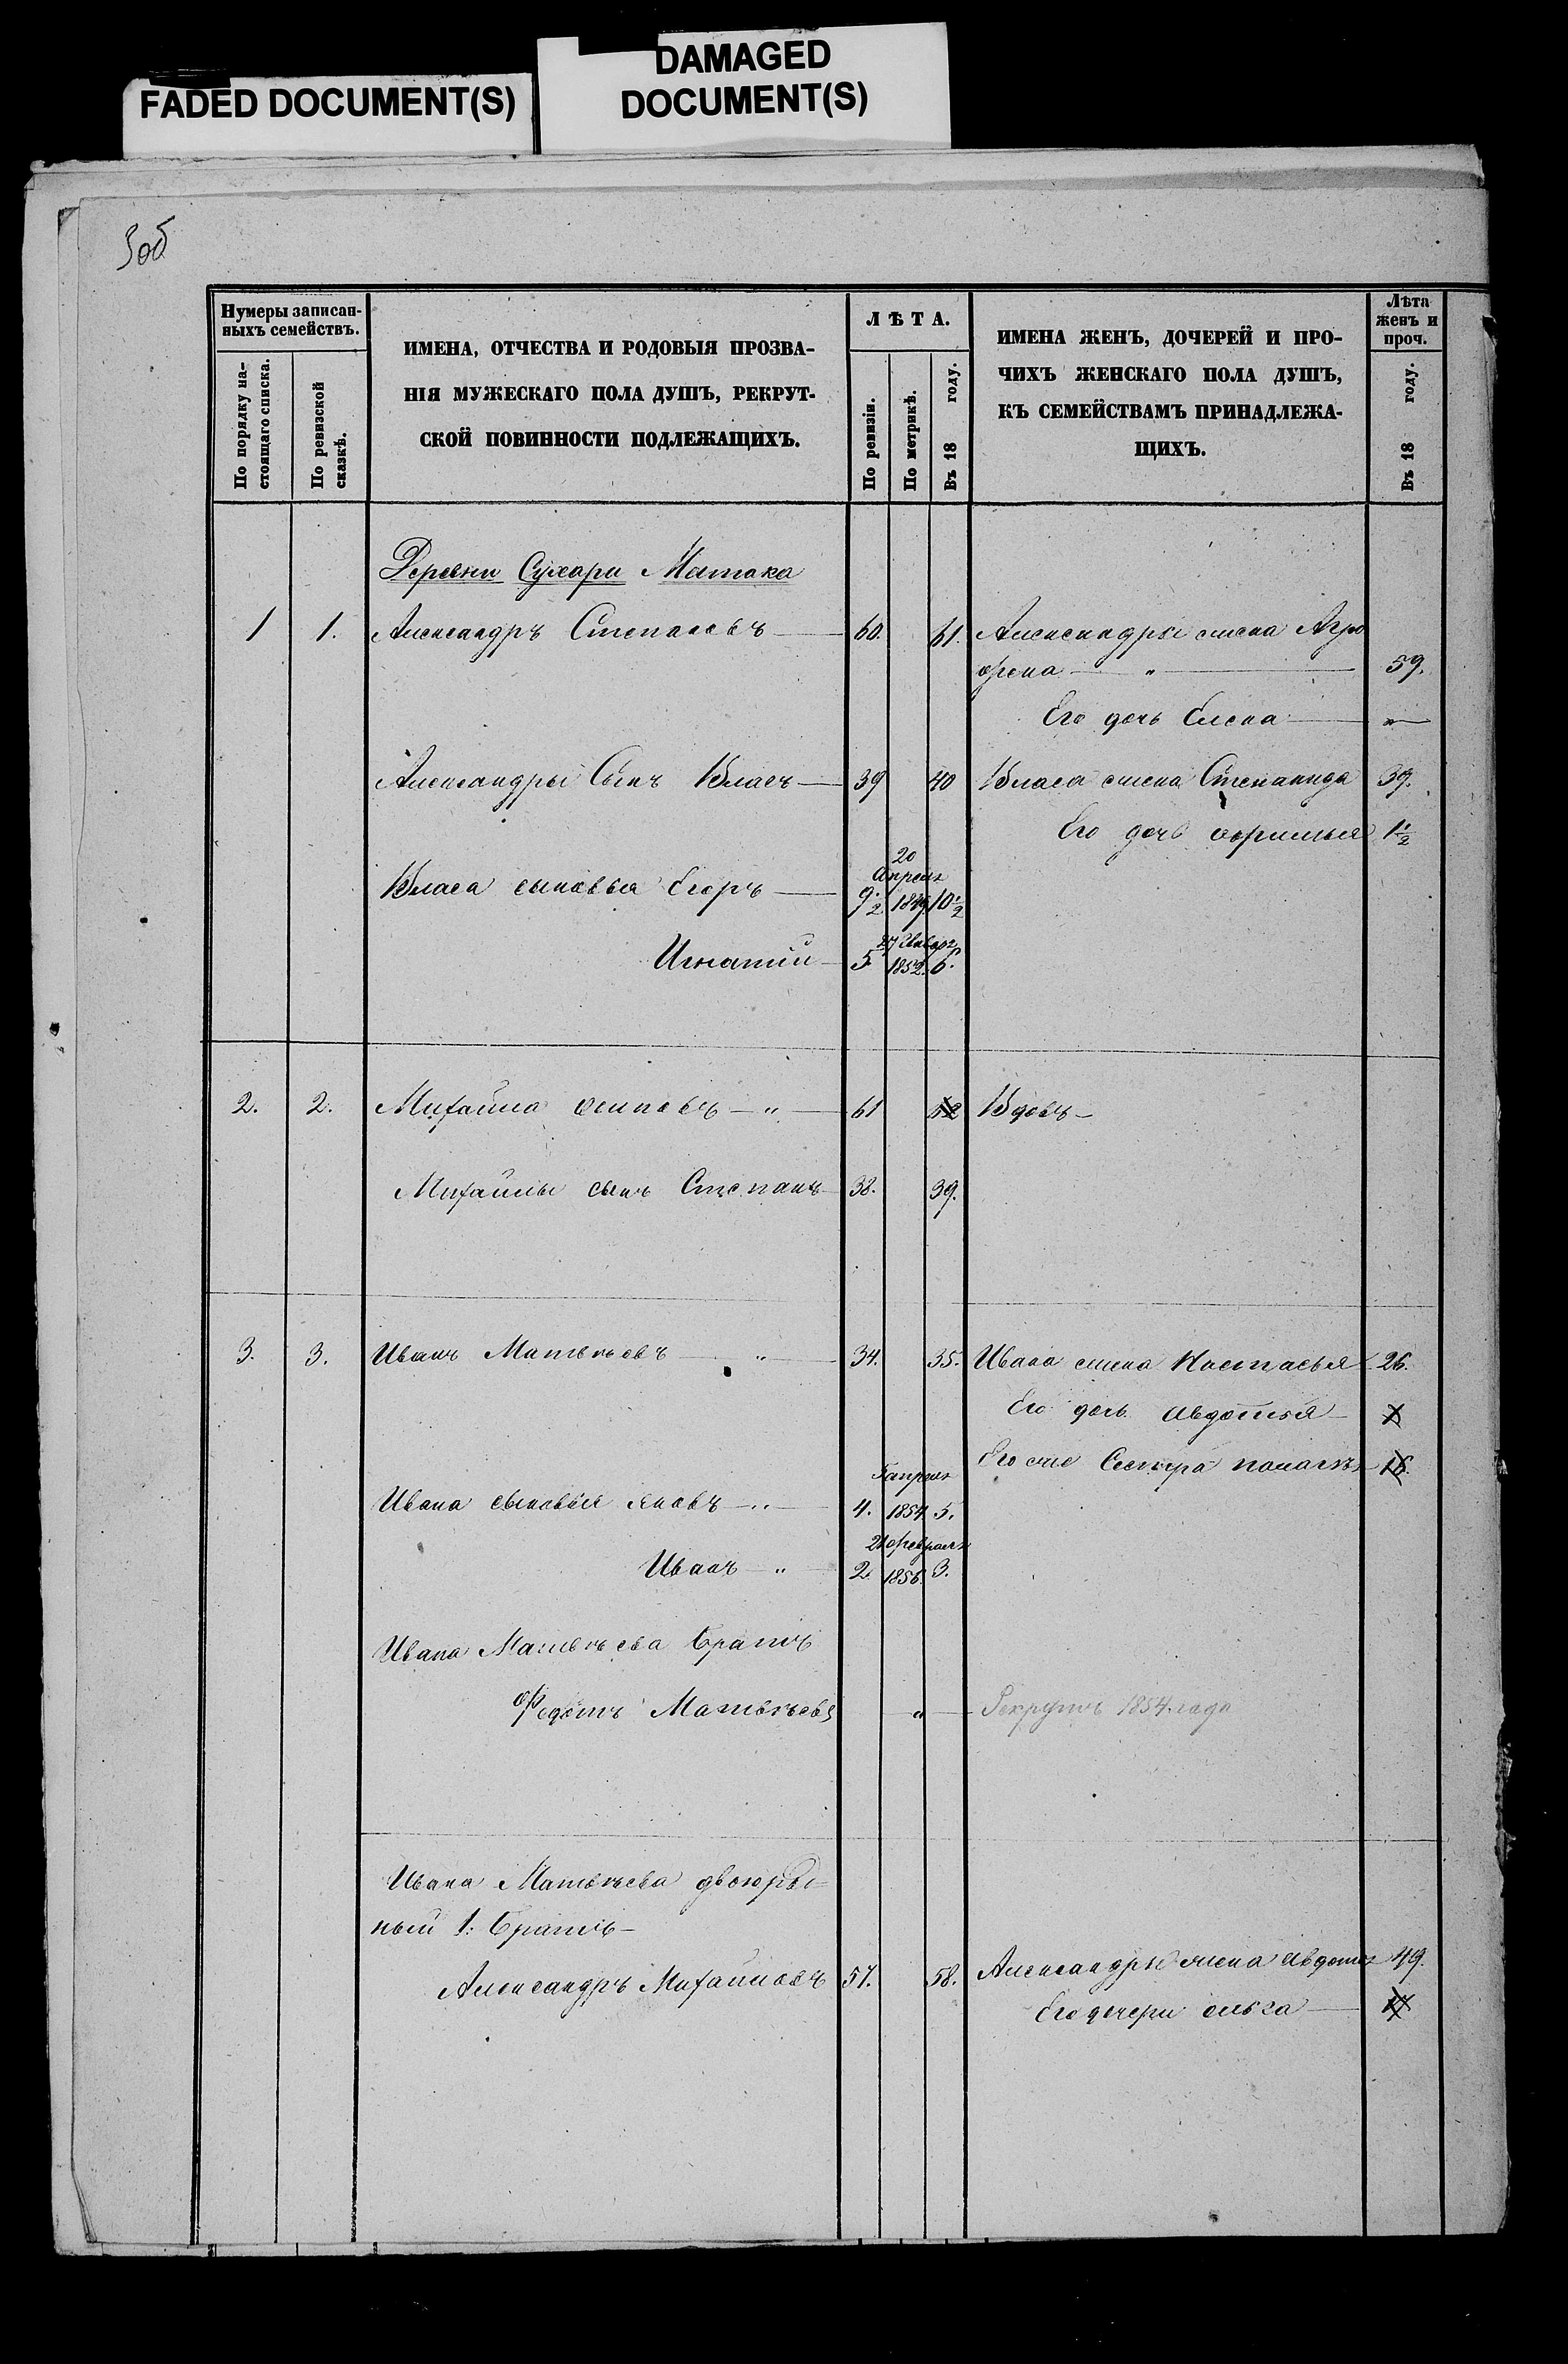 FADED DOCUMENT(S)
DAMAGED
DOCUMENT(S)
3об
Нумеры записан-
ныхъ семействъ.
По порядку на-
стоящаго списка.
По ревизской
сказкѣ.
ИМЕНА, ОТЧЕСТВА И РОДОВЫЯ ПРОЗВА-
НІЯ МУЖЕСКАГО ПОЛА ДУШЪ, РЕКРУТ-
СКОЙ ПОВИННОСТИ ПОДЛЕЖАЩИХЪ.
ЛѢТА.
По ревизіи.
По метрикѣ.
Въ 18 году.
ИМЕНА ЖЕНЪ, ДОЧЕРЕЙ И ПРО-
ЧИХЪ ЖЕНСКАГО ПОЛА ДУШЪ,
КЪ СЕМЕЙСТВАМЪ ПРИНАДЛЕЖА-
ЩИХЪ.
Лѣта
женъ и
проч.
Въ 18 году.
Деревни Сухари Матака
1 1. Александръ Степановъ 60. 61. Александры жена Агро
фена — " — 59.
Его дочь Елена — "
Александры Сынъ Власъ 39 40 Власа жена Степанида 39.
Его дочь 1 1/2
20
Апреля
Власа сыновья Егоръ 9 1/2 1849 10 1/2
27 Января
Игнатий 5 1852. 6.
2. 2. Михайла осиповъ — " — 61 62 Вдовъ
Михайлы сынъ Степанъ 38. 39.
3. 3. Иванъ Матвѣевъ — " — 34. 35. Ивана жена Настасья 26.
Его дочь Авдотья
Его же Сестра 16.
апреля
Ивана сыновья яковъ — " — 4. 1854 5.
21 февраля
Иванъ — " 2. 1856. 3.
Ивана Матвѣева братъ
Федотъ Матвѣевъ " Рекрутъ 1854. года
Ивана Матвѣева двоюрод-
ный 1: братъ
Александръ Михайловъ 57. 58. Александры жена Авдотья 49.
Его дочери ольга 17